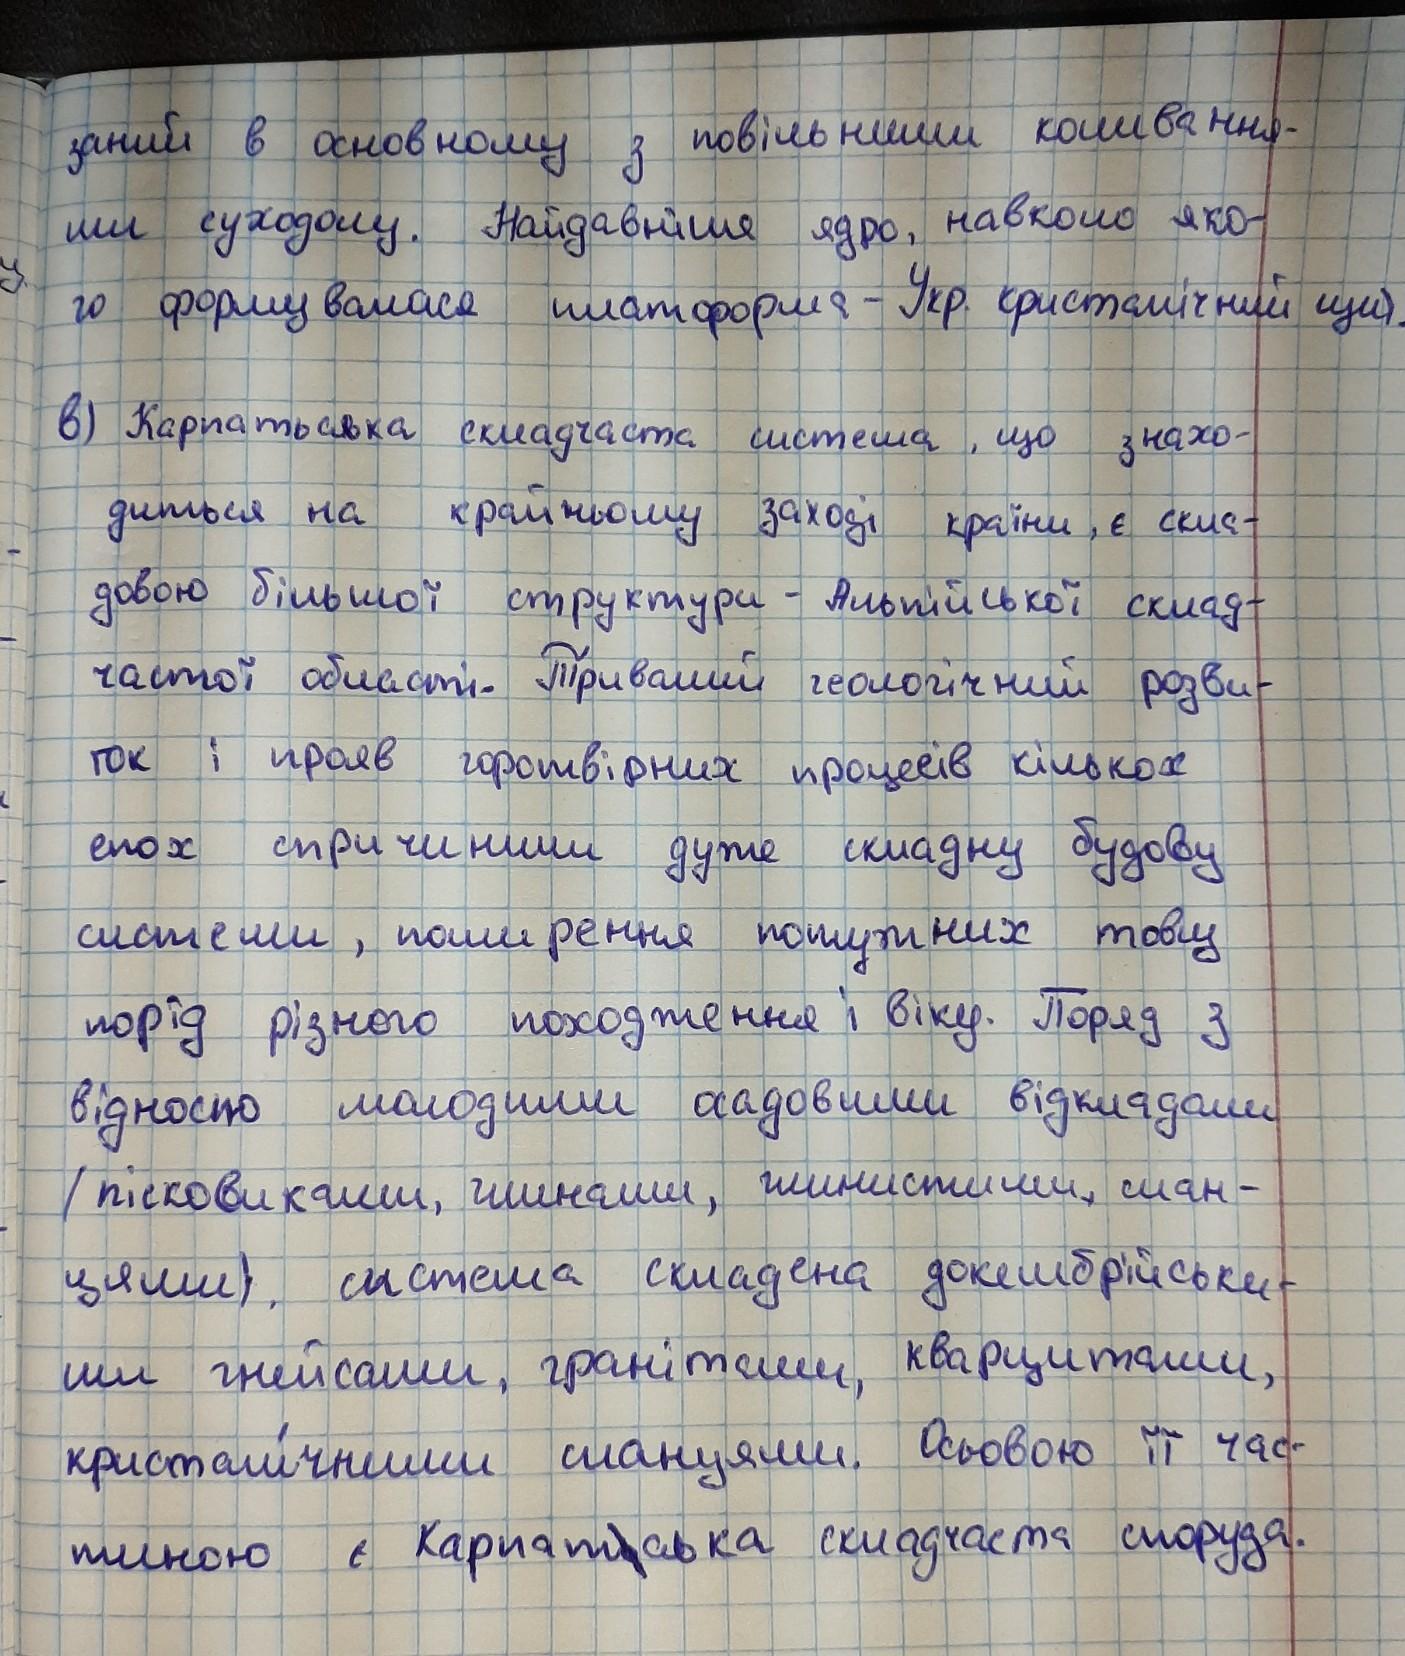 заний в основному з повільними коливання-
ми суходолу. Найдавніше ядро, навколо яко-
го формувалася платформа - Укр. кристалічний щит.
в) Карпатська складчаста система, що знахо-
диться на крайньому заході країни, є скла-
довою більшої структури - Альпійської склад-
частої області. Тривалий геологічний розви-
ток і прояв горотвірних процесів кількох
епох спричинили дуже складну будову
системи, поширення потужних товщ
порід різного походження і віку. Поряд з
відносно молодими осадовими відкладами
(пісковиками, глинами, глинистими, слан-
цями), система складена докембрійськи-
ми гнейсами, гранітами, кварцитами,
кристалічними сланцями. Осьовою її час-
тиною є Карпатська складчаста споруда.